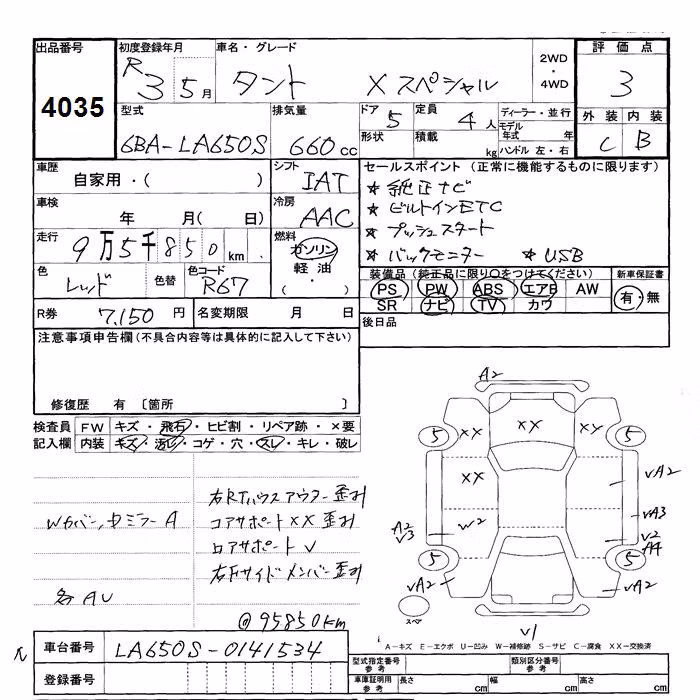 出品番号
4035
初度登録年月
R3 5月
車名・グレード
タント Xスペシャル
2WD・4WD
評価点
3
外装 内装
C B
型式
6BA-LA650S
排気量
660cc
ドア 5
形状
定員 4人
積載 kg
ディーラー・並行
モデル年式 年
ハンドル 左・右
車歴
自家用・( )
シフト
IAT
車検
年 月( 日)
冷房
AAC
走行
9万5千850km
燃料
ガソリン
軽油
( ・ )
色
レッド
色替
色コード
R67
R券 7,150円
名変期限 月 日
セールスポイント(正常に機能するものに限ります)
★ 純正ナビ
★ ビルトインETC
★ プッシュスタート
★ バックモニター ★ USB
装備品(純正品に限り○をつけてください)
PS PW ABS エアB AW
SR ナビ TV カワ
新車保証書
有・無
後日品
注意事項申告欄(不具合内容等は具体的に記入して下さい)
修復歴 有 〔箇所 〕
検査員記入欄
FW キズ・飛石・ヒビ割・リペア跡・×要
内装 キズ・汚レ・コゲ・穴・スレ・キレ・破レ
Wカバー,中ミラーA
各AU
右Rタイヤハウスアウター歪み
コアサポートXX歪み
ロアサポートV
右Fサイドメンバー歪み
@95850km
A2
XX
XX
XX
5
5
5
5
W2
A2
V3
VA2
VA2
VA3
V2
A4
VA2
V1
スペ
A-キズ E-エクボ U-凹み W-補修跡 S-サビ C-腐食 XX-交換済
車台番号
LA650S-0141534
登録番号
型式指定番号 参考
類別区分番号 参考
車庫証明用 参考
長さ cm
幅 cm
高さ cm